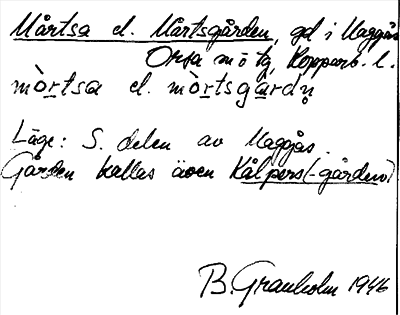 Mårtsa el. Mårtsgården, gd i Maggås
Orsa sn o tg, Kopparb. l.
mòrtsa el. mòrtsgårdn̥
Läge: S. delen av Maggås.
Gården kallas även Kålpers(-gården)
B. Granholm 1946